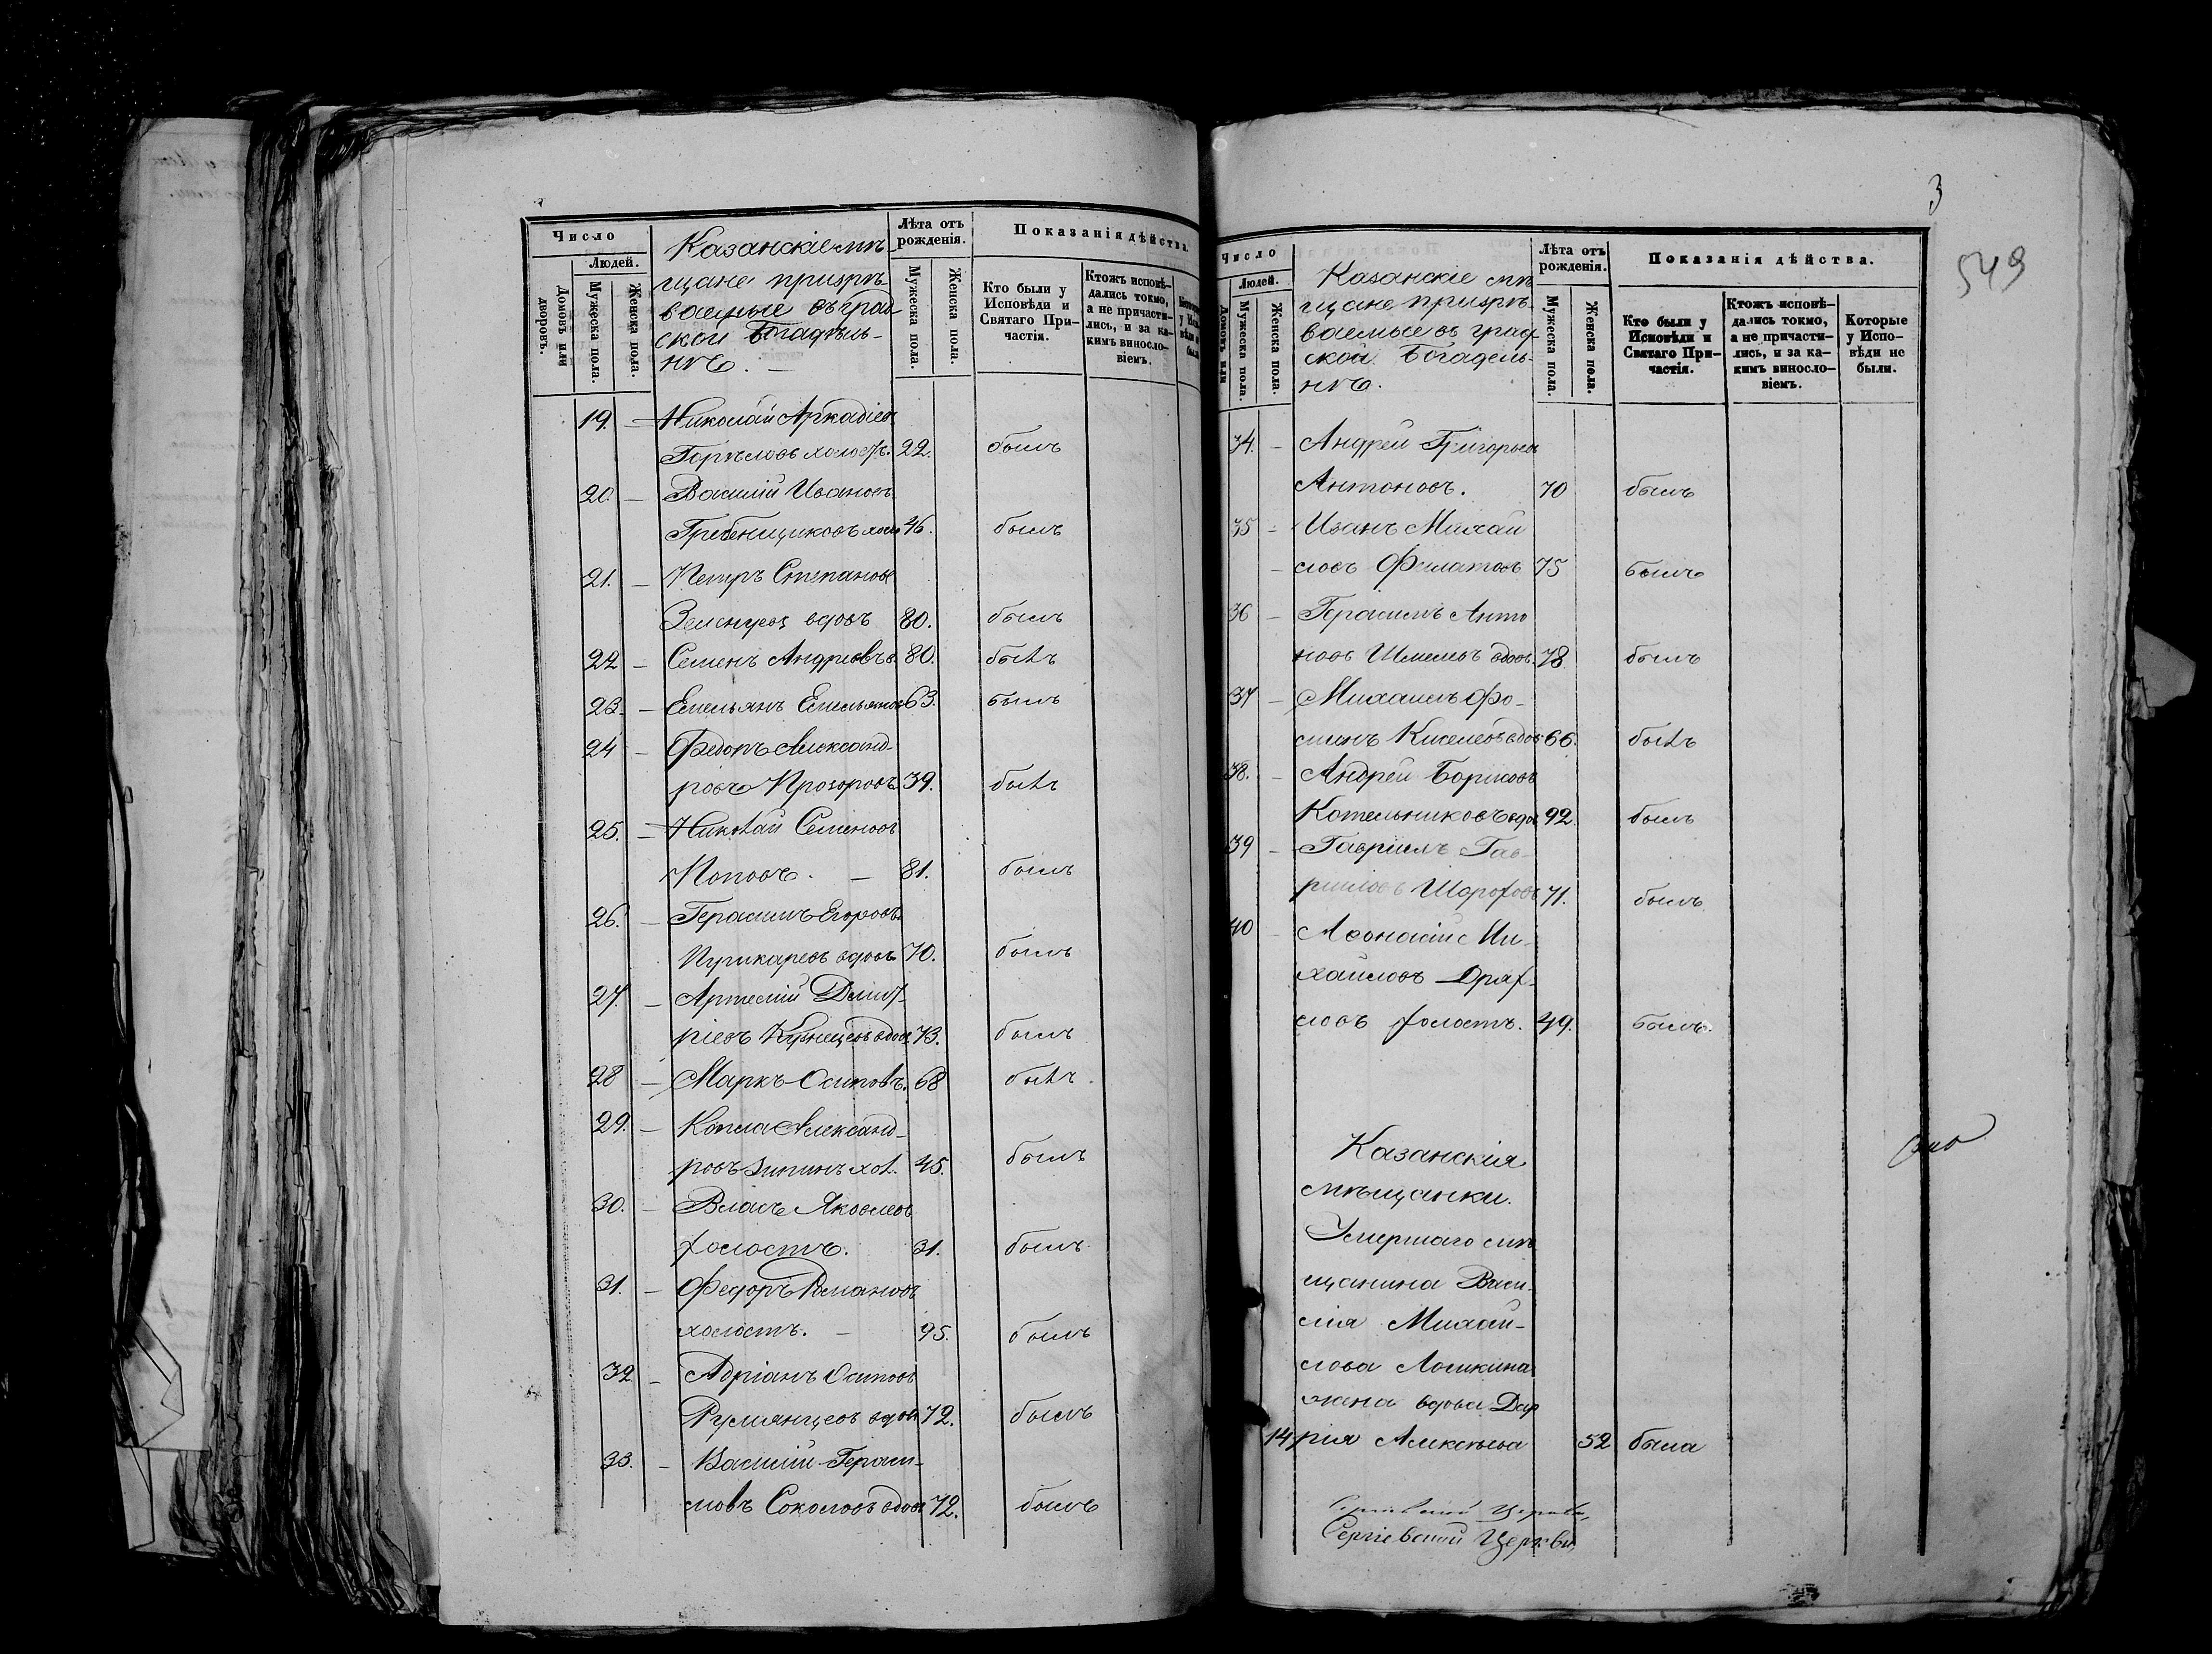 Число
Людей.
Домовъ или дворовъ.
Мужеска пола.
Женска пола.
Казанскіе мѣ-
щане призрѣ-
ваемые въ град-
ской Богадѣль-
нѣ. —
Лѣта отъ рожденія.
Мужеска пола.
Женска пола.
Показанія дѣйства.
Кто были у Исповѣди и Святаго При-частія.
Ктожъ исповѣ-дались токмо, а не причасти-лись, и за ка-кимъ винословіемъ.
19. — Николай Аркадіевъ
Горѣловъ холостъ. 22. былъ
20 — Василій Ивановъ
Гребенщиковъ холо 46. былъ
21. — Петръ Степановъ
вдовъ 80. былъ
22 — Семенъ Андреевъ в. 80. былъ
23. — Емельянъ Емельянов 63. былъ
24 — Федоръ Александ-
ровъ Прозоровъ 39. былъ
25. — Николай Семеновъ
Поповъ. — 81. былъ
26. — Герасимъ Егоровъ
вдовъ 70. былъ
27. — Артемій Дмит-
ріевъ Кузнецовъ вдов 73. былъ
28 — Маркъ Осиповъ. 68 былъ
29. — Александ-
ровъ Зининъ хол. 45. былъ
30. — Власъ Яковлевъ
холостъ. 31. былъ
31. — Федоръ Романовъ
холостъ. — 95. былъ
32 — Адріанъ Осиповъ
Румянцевъ вдов 72. былъ
33. — Василій Гераси-
мовъ Соколовъ вдов 72. былъ
3
549
Число
Людей.
Домовъ или
Мужеска пола.
Женска пола
Казанскіе мѣ
щане призрѣ-
ваемые въ град-
ской Богадель-
нѣ.
Лѣта отъ рожденія.
Мужеска пола.
Женска пола.
Показанія дѣйства.
Кто были у Исповѣди и Святаго При-частія.
Ктожъ исповѣ-дались токмо, а не причасти-лись, и за ка-кимъ винословіемъ.
Которые у Испо-вѣди не были.
34. — Андрей Григорьевъ
Антоновъ. 70 былъ
35 — Иванъ Михай
— ловъ Филатовъ 75 былъ
36 — Герасимъ Анто
новъ Шмелевъ вдов. 78 былъ
37 — Михаилъ Фо-
минъ Киселевъ вдов 66. былъ
38. — Андрей Борисовъ
Котельниковъ вдов 92. былъ
39 — Гавріилъ Гав-
риловъ Шороховъ 71. былъ
40 Афонасій Ми-
хайловъ
ловъ холостъ. 49. былъ
Казанскія
мѣщанки.
Умершаго мѣ
щанина Васи-
лія Михай-
лова Ложкина
жена вдова Дар
14 рія Алексѣева 52 была
Сергіевской Церкви,
Сергіевской Церкви,